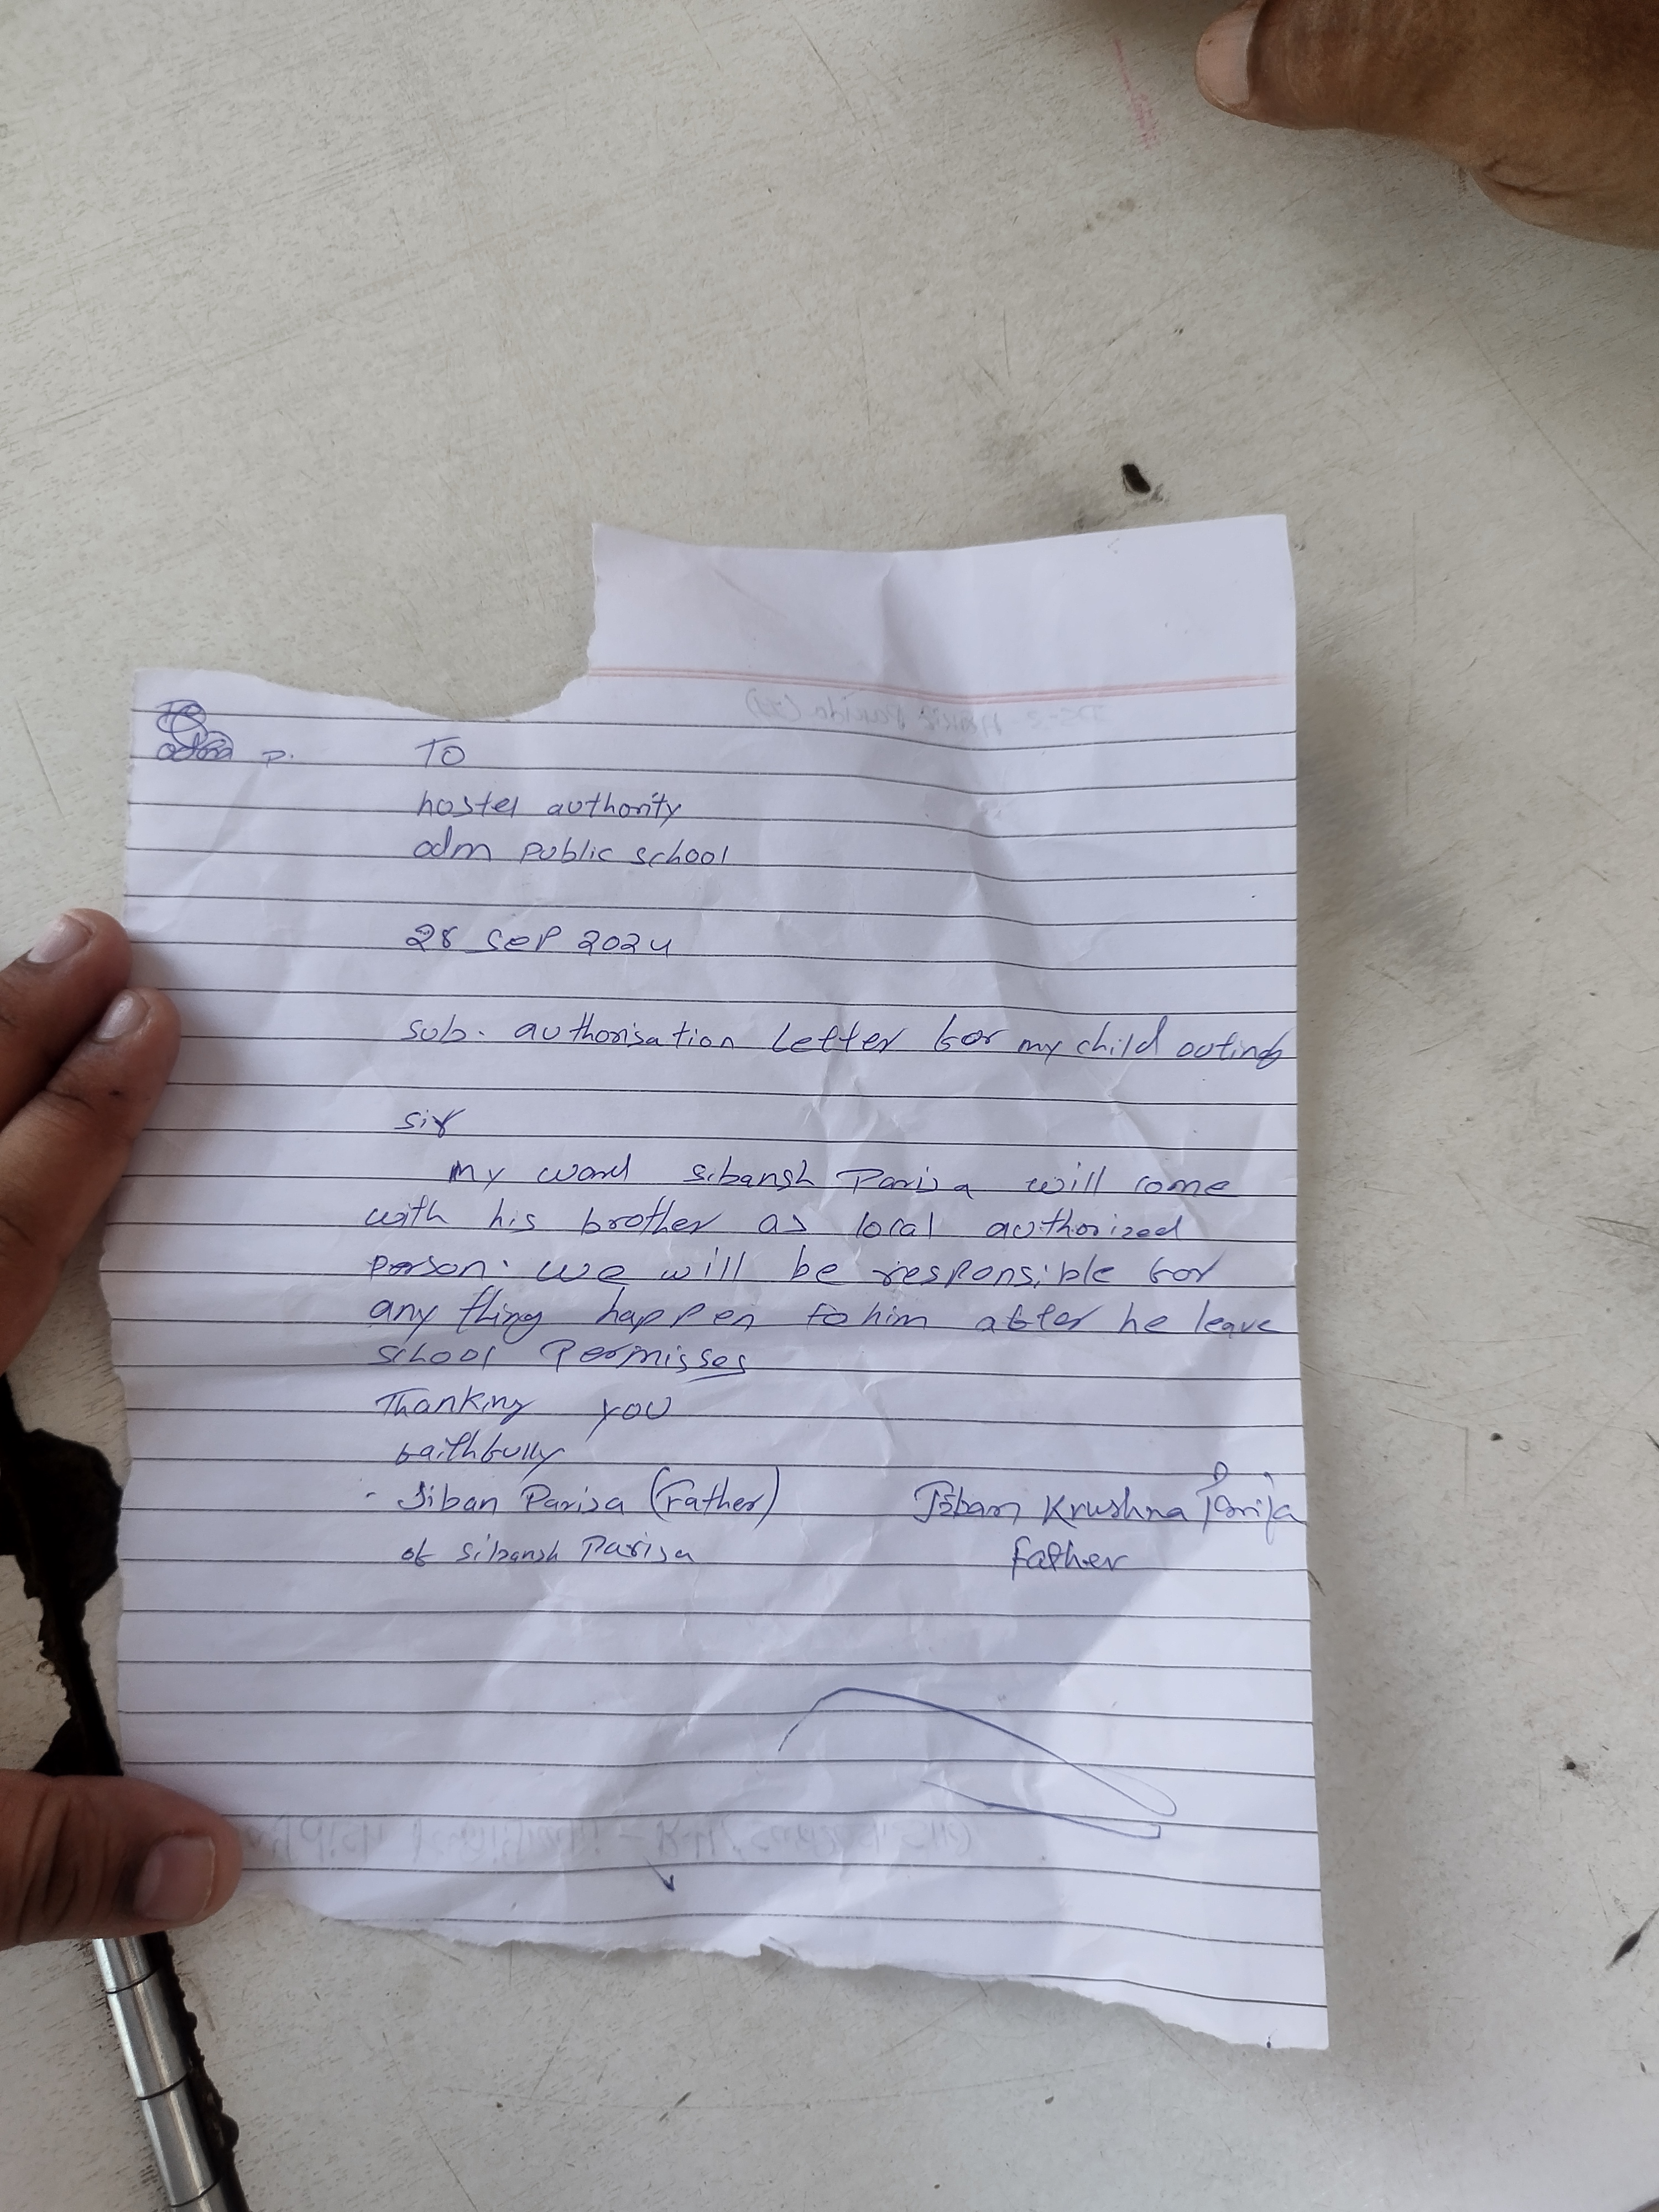 TO
hostel authority
odm public school
28 sep 2024
sub. authorisation letter for my child outing
sir
my ward sibansh Parija will come
with his brother as local authorized
person. we will be responsible for
any thing happen to him after he leave
school Permisses
Thanking you
faithfully
- Jiban Parija (Father)
of sibansh Parija
Jiban Krushna Parija
father